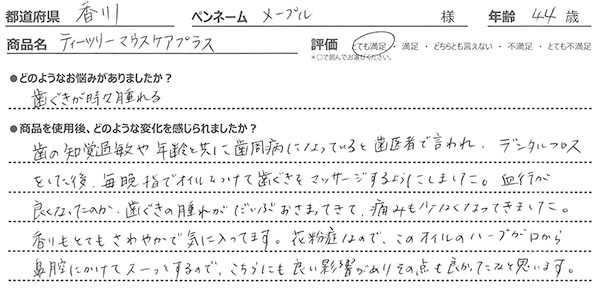 都道府県 香川 ペンネーム メープル 様 年齢 44 歳
商品名 ティーツリーマウスケアプラス 評価 とても満足 ・ 満足 ・ どちらとも言えない ・ 不満足 ・ とても不満足
*○で囲んでお選びください。
●どのようなお悩みがありましたか？
歯ぐきが時々腫れる
●商品を使用後、どのような変化を感じられましたか？
歯の知覚過敏や年齢と共に歯周病になっていると歯医者で言われ、デンタルフロス
をした後、毎晩指でオイルをつけて歯ぐきをマッサージするようにしました。血行が
良くなったのか、歯ぐきの腫れがだいぶおさまってきて、痛みも少なくなってきました。
香りもとてもさわやかで気に入ってます。花粉症なので、このオイルのハーブが口から
鼻腔にかけてスーッとするので、こちらにも良い影響がありその点も良かったなと思います。